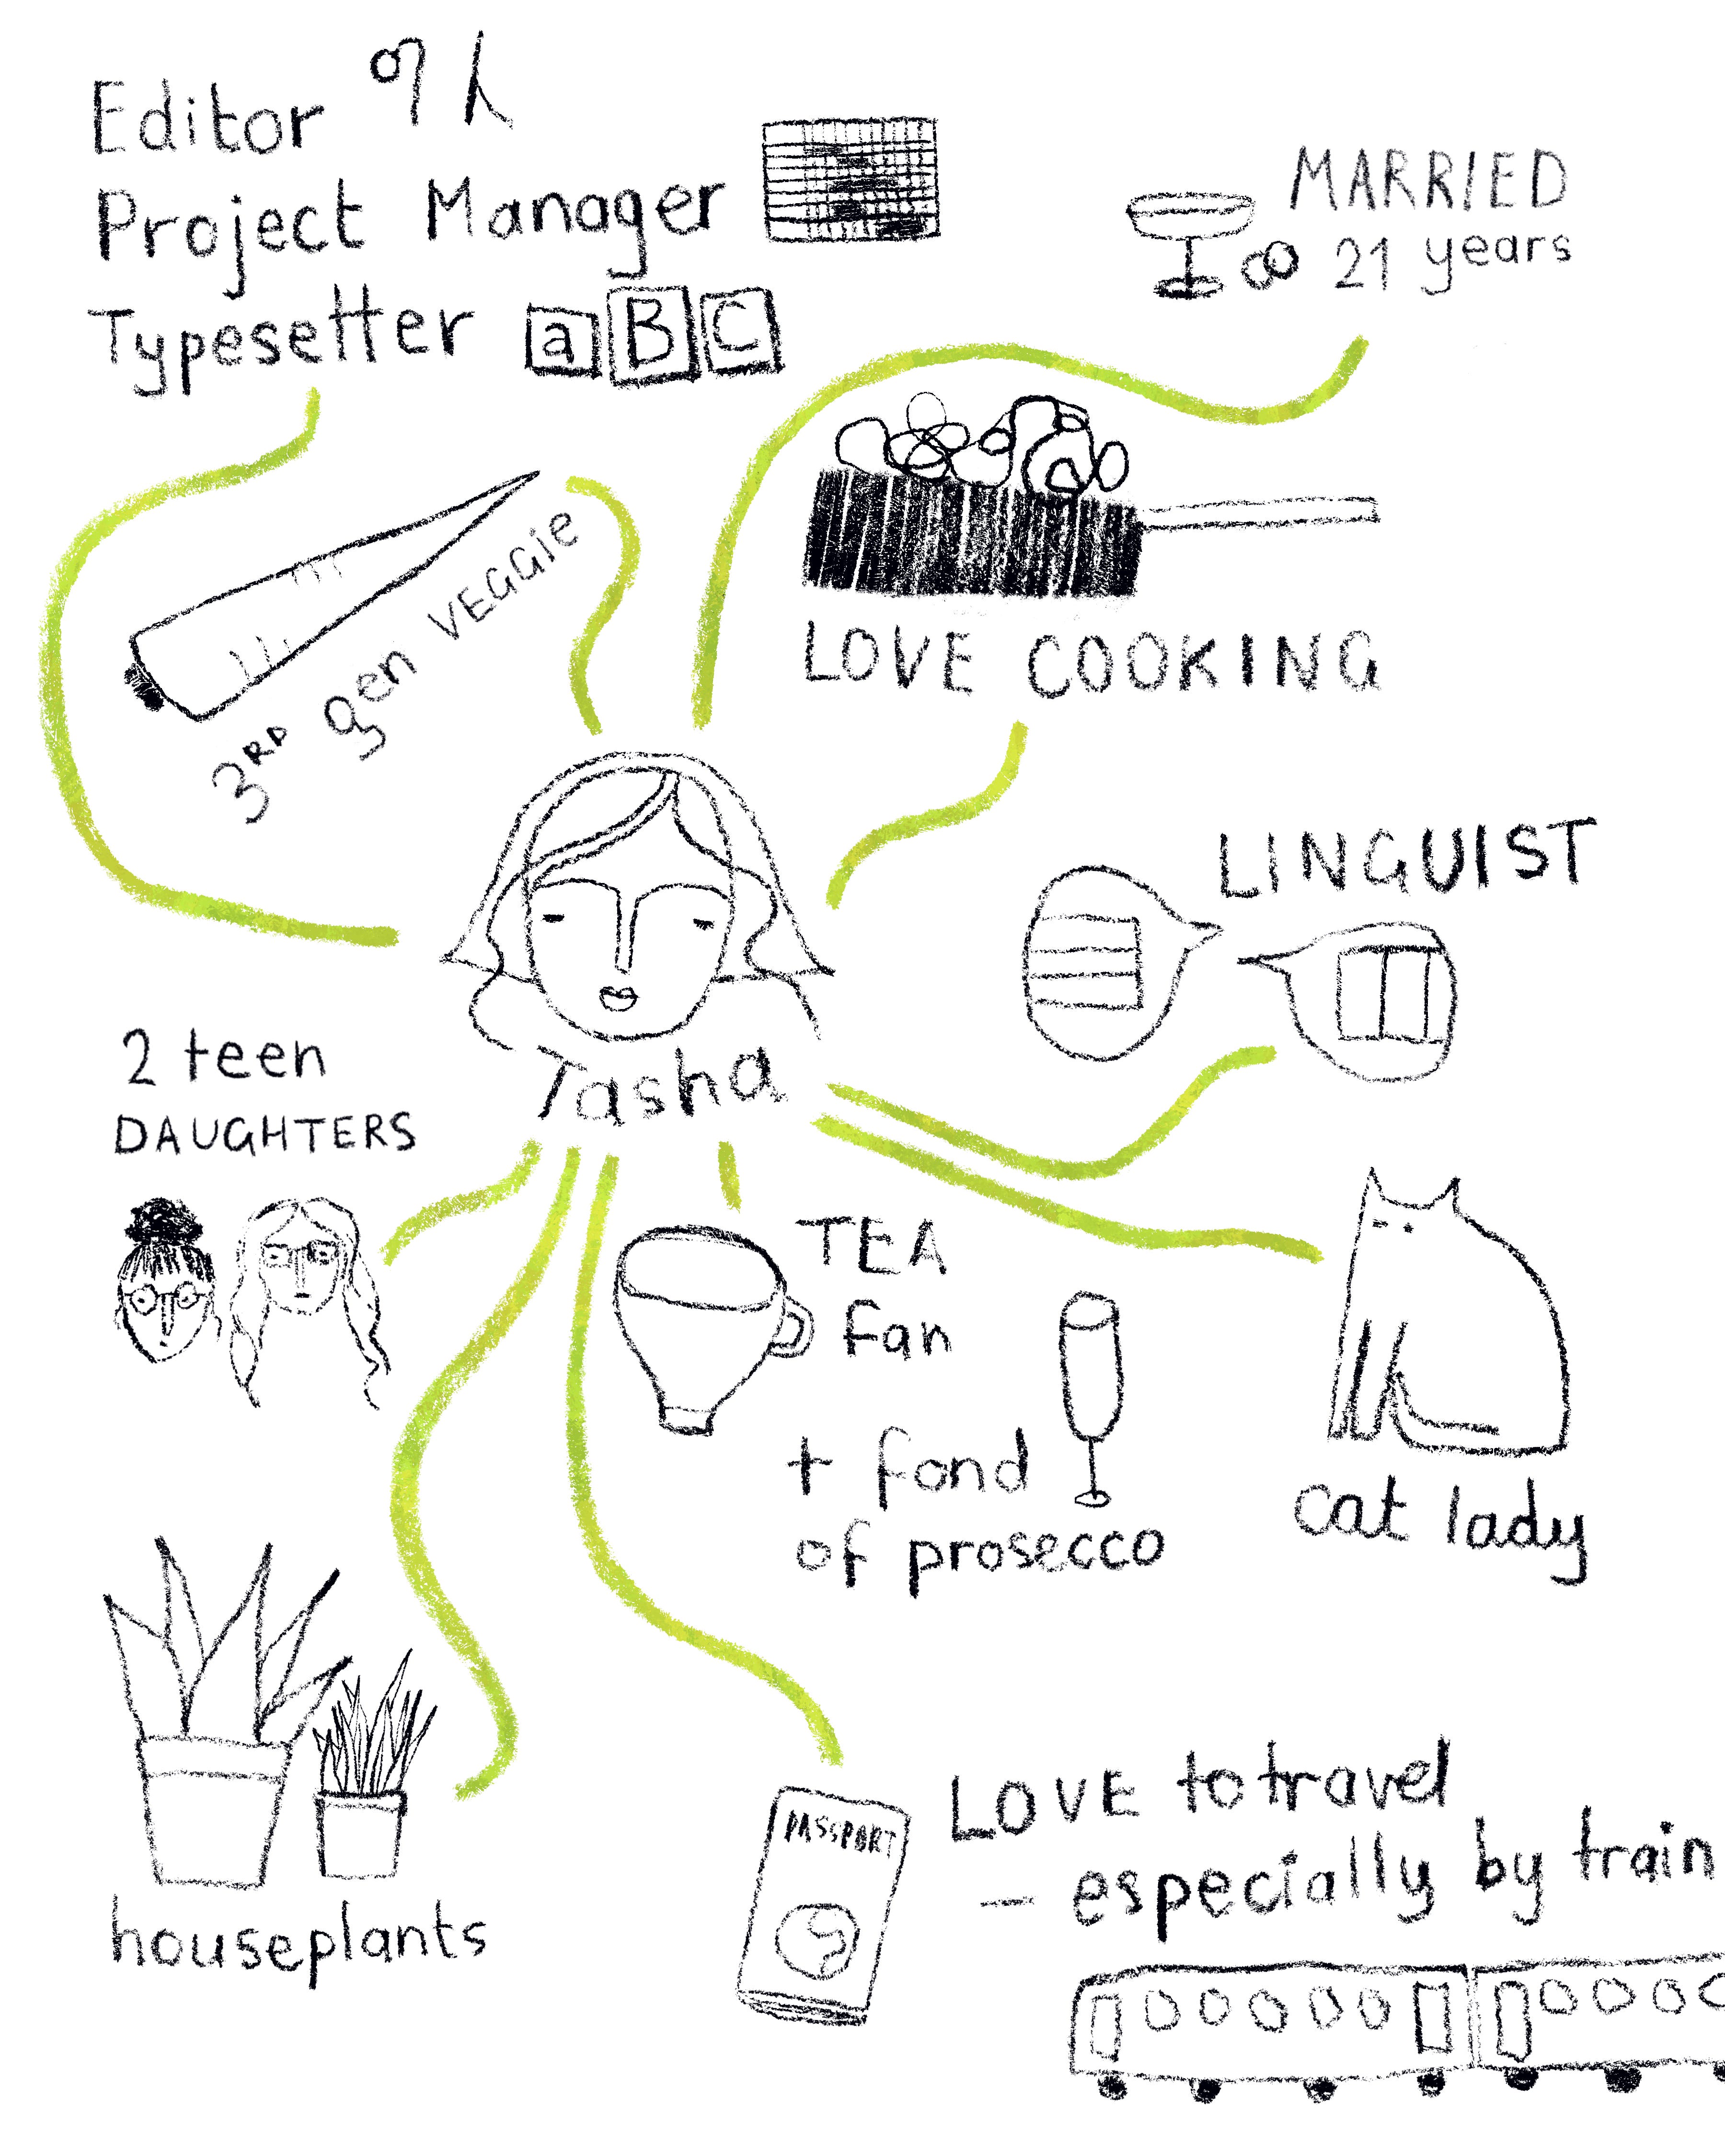 Editor
Project Manager
Typesetter a B C
MARRIED
21 years
3RD gen VEGGie
LOVE COOKING
LINGUIST
Tasha
2 teen
DAUGHTERS
TEA
fan
+ fond
of prosecco
cat lady
houseplants
PASSPORT
LOVE to travel
— especially by train